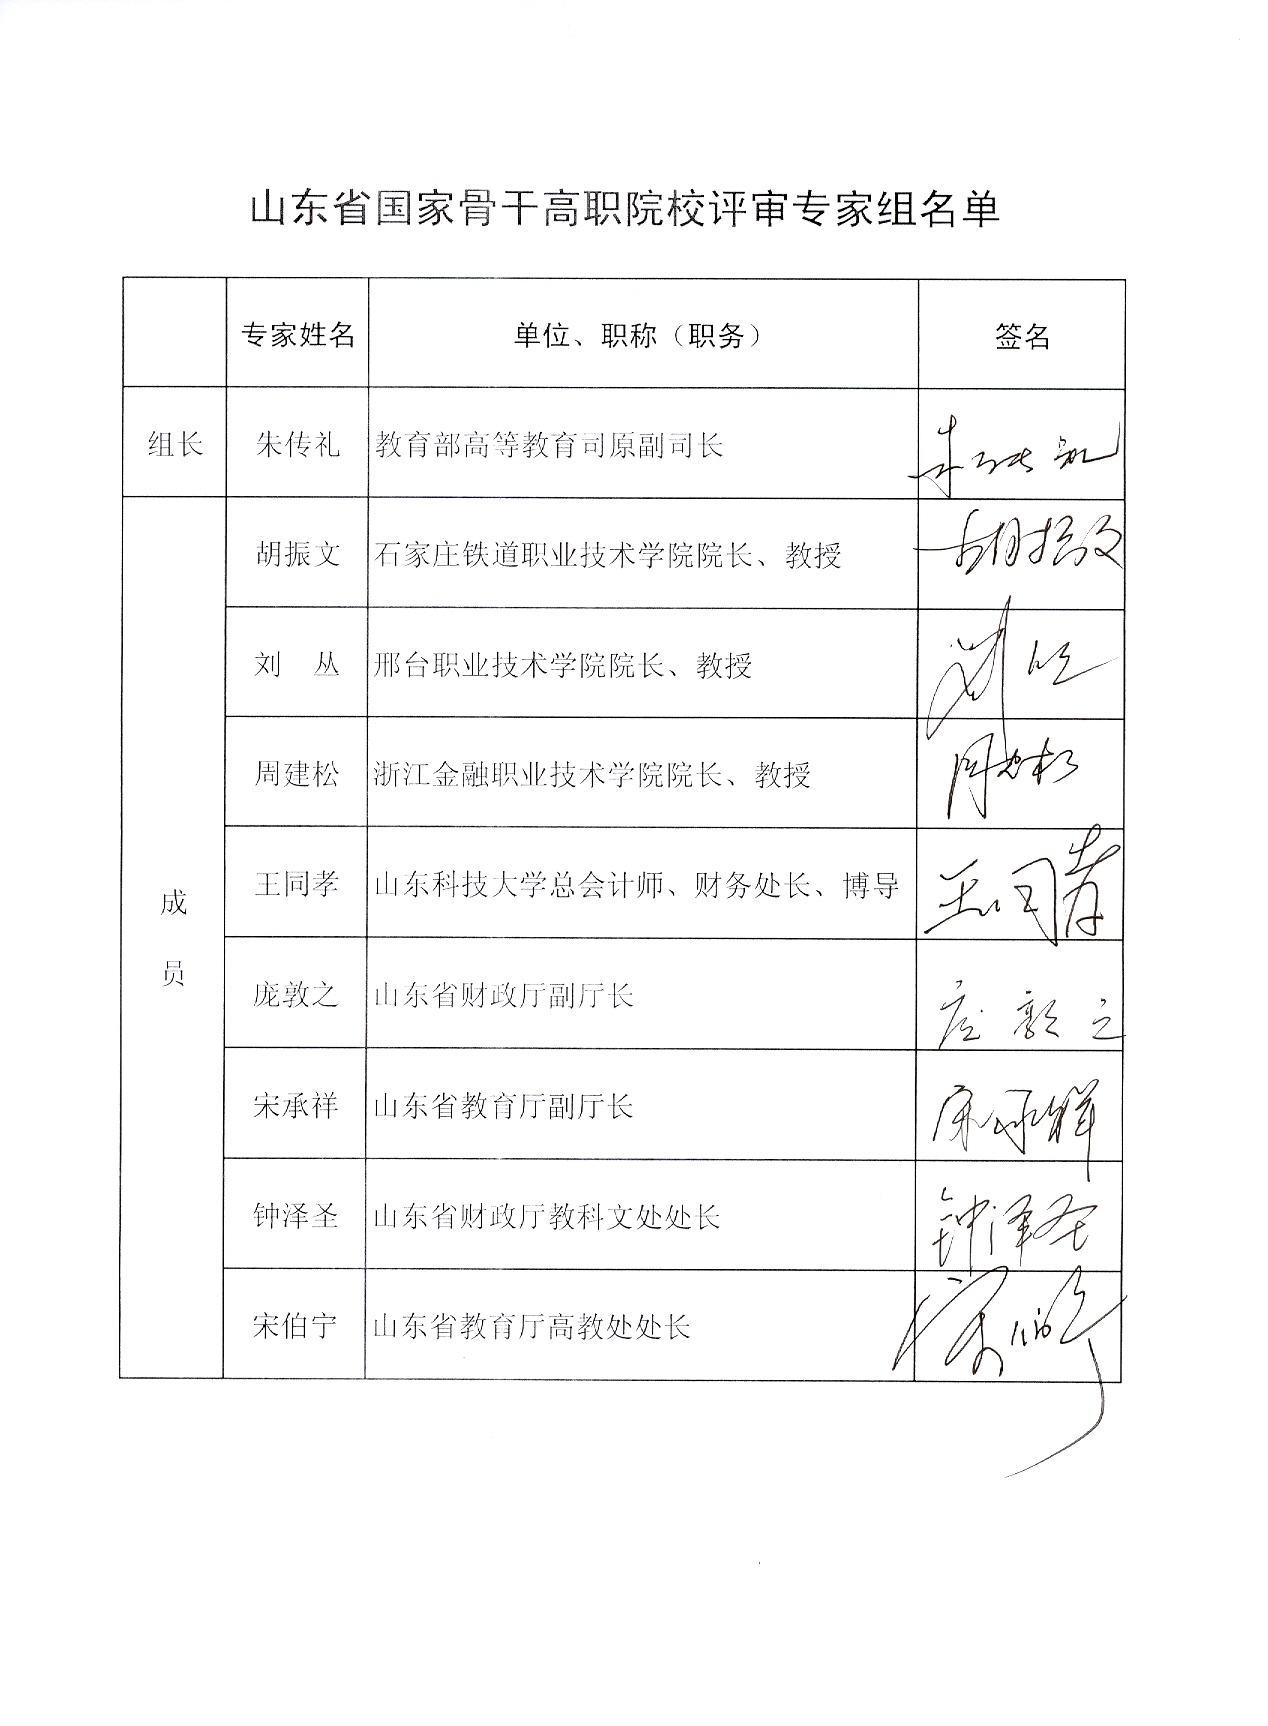 山东省国家骨干高职院校评审专家组名单
专家姓名 单位、职称（职务） 签名
组长 朱传礼 教育部高等教育司原副司长 朱传礼
成员
胡振文 石家庄铁道职业技术学院院长、教授 胡振文
刘 丛 邢台职业技术学院院长、教授 刘丛
周建松 浙江金融职业技术学院院长、教授 周建松
王同孝 山东科技大学总会计师、财务处长、博导 王同孝
庞敦之 山东省财政厅副厅长 庞敦之
宋承祥 山东省教育厅副厅长 宋承祥
钟泽圣 山东省财政厅教科文处处长 钟泽圣
宋伯宁 山东省教育厅高教处处长 宋伯宁